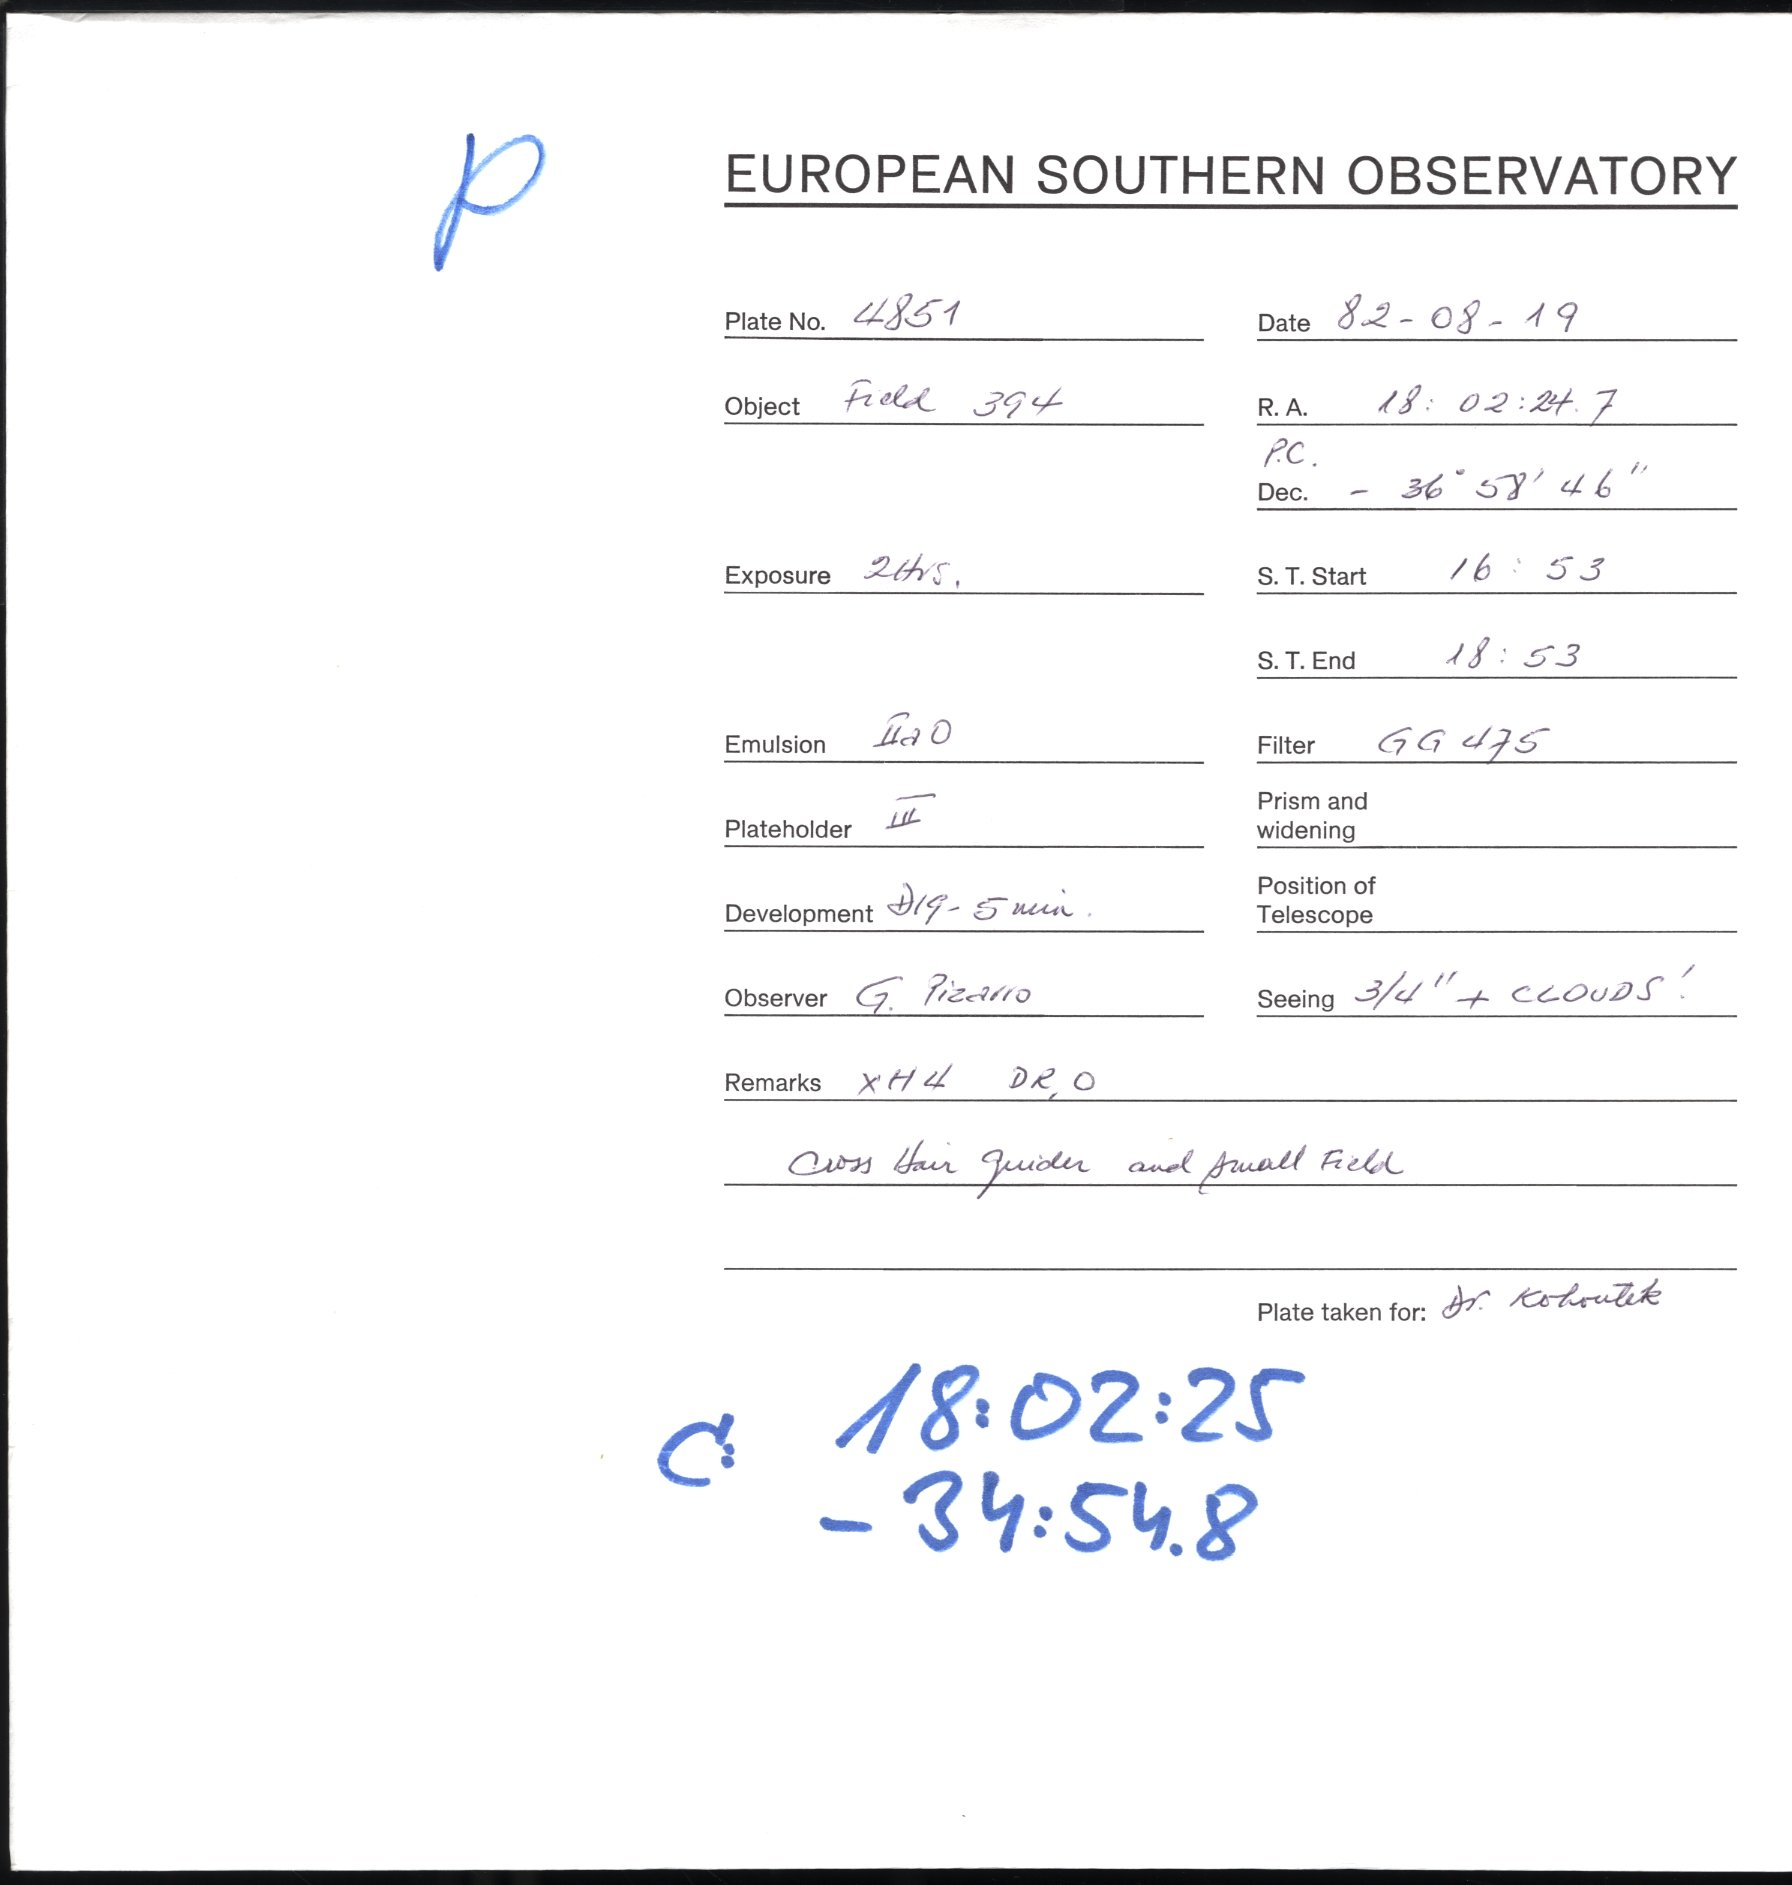 p
EUROPEAN SOUTHERN OBSERVATORY
Plate No. 4851 Date 82-08-19
Object Field 394 R. A. 18: 02:24.7
P.C.
Dec. - 36° 58' 46"
Exposure 2Hrs. S. T. Start 16: 53
S. T. End 18:53
Emulsion IIaO Filter GG 475
Plateholder III Prism and
widening
Development D19-5 min. Position of
Telescope
Observer G. Pizarro Seeing 3/4" + CLOUDS!
Remarks XH4 DR,O
Cross Hair guider and small Field
Plate taken for: Dr. Kohoutek
C: 18:02:25
- 34:54.8